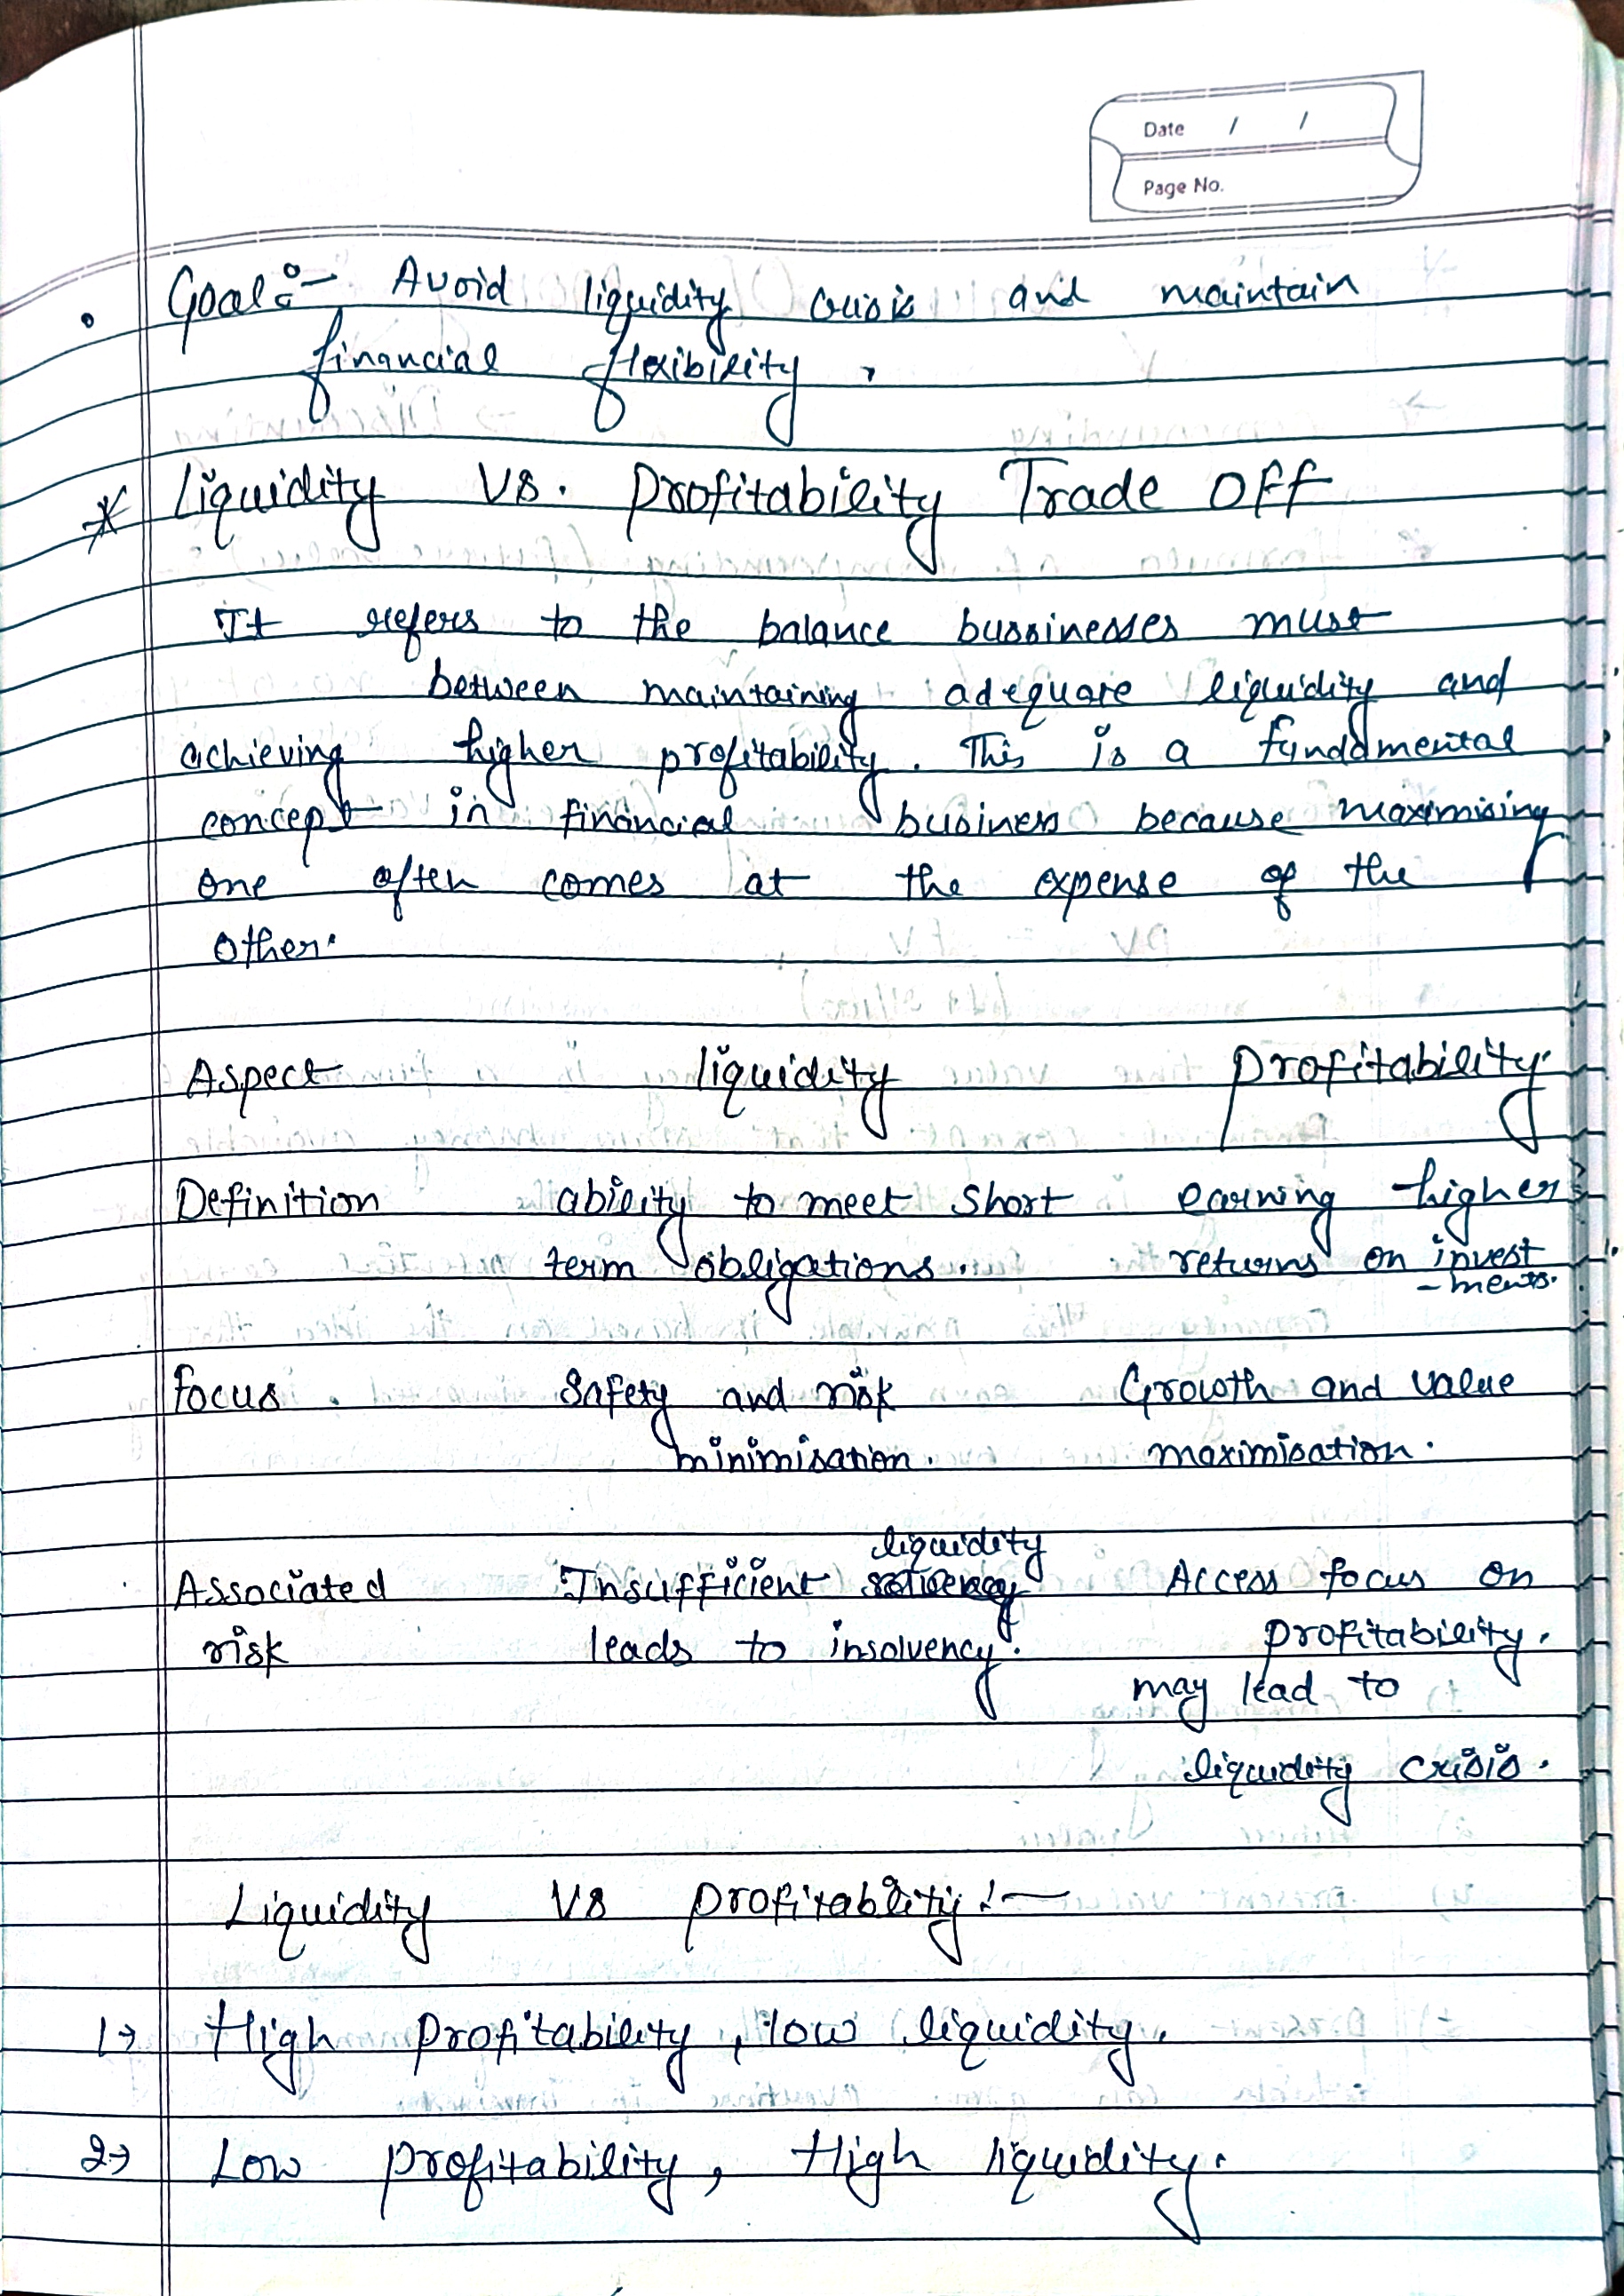 Date / /
Page No.
• Goal :- Avoid liquidity crisis and maintain
financial flexibility.
* Liquidity VS. Profitability Trade OFF
It refers to the balance bussinesses must
between maintaining adequare liquidity and
achieving higher profitability. This is a fundamental
concept in financial business because maximising
one often comes at the expense of the
other.
Aspect liquidity profitability
Definition ability to meet short earning higher
term obligations. returns on invest
-ments.
focus. Safety and risk Growth and value
minimisation. maximisation.
liquidity
Associated Insufficient leads Access focus on
risk leads to insolvency. profitability.
may lead to
liquidity crisis.
Liquidity VS profitablity :-
1→ High profitability, low liquidity.
2→ Low profitability, High liquidity.